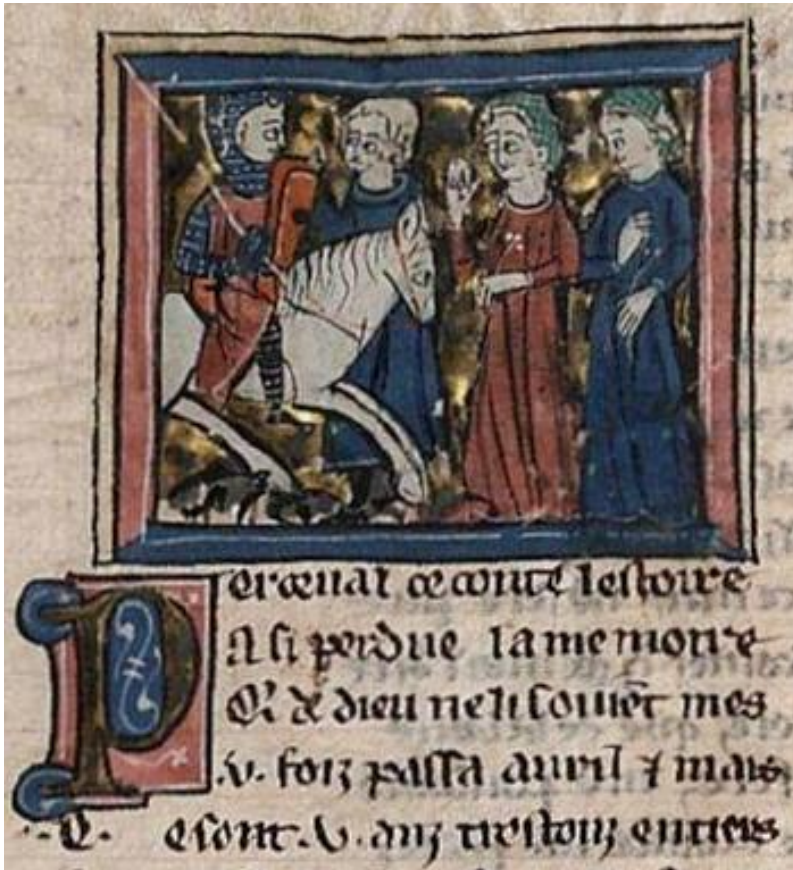 Perceual ce conte lestoire
A si perdue la memoire
Q̃ de dieu ne li souiẽt mes
.v. foiz passa auril ⁊ mais
Ce sont .v. anz trestouz entiers